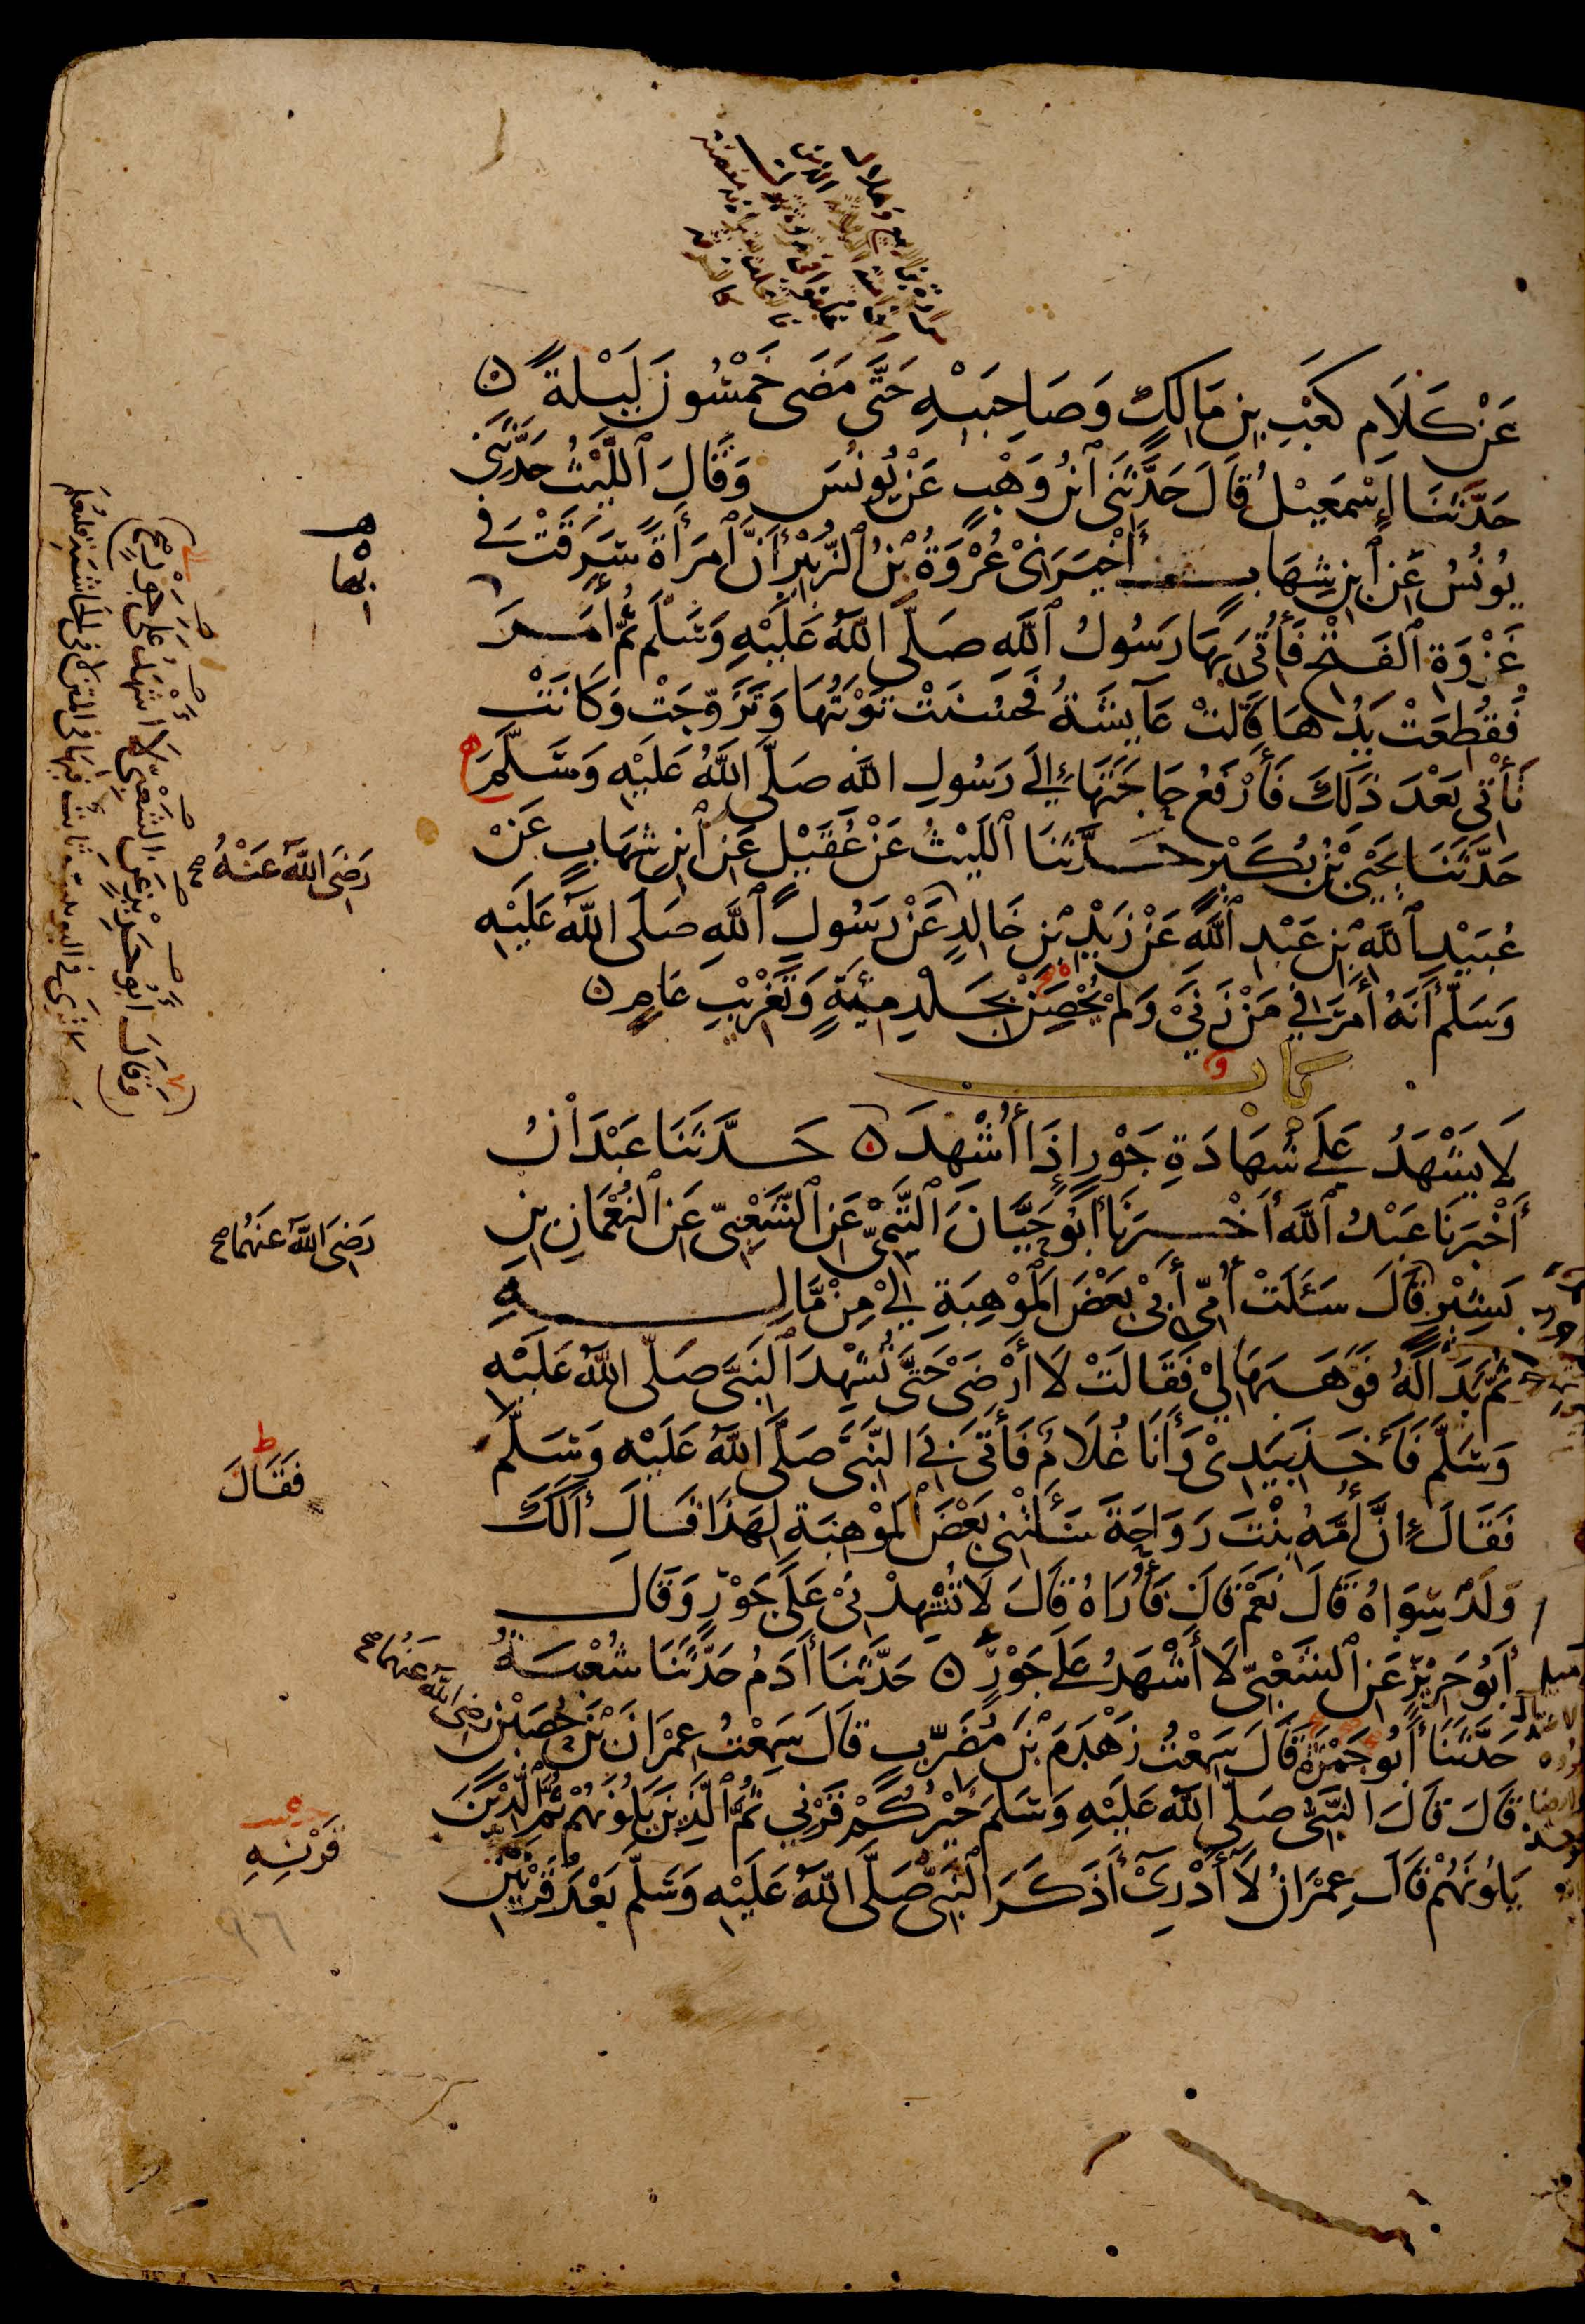 عَنْ كَلَامِ كَعْبِ بْنِ مَالِكٍ وَصَاحِبَيْهِ حَتَّى مَضَى خَمْسُونَ لَيْلَةً ه
حَدَّثَنَا إِسْمَعِيْلُ قَالَ حَدَّثَنِي ابْنُ وَهْبٍ عَنْ يُونُسَ وَقَالَ اللَّيْثُ حَدَّثَنِي
يُونُسُ عَنِ ابْنِ شِهَابٍ أَخْبَرَنِي عُرْوَةُ بْنُ الزُّبَيْرِ أَنَّ امْرَأَةً سَرَقَتْ فِي
غَزْوَةِ الْفَتْحِ فَأُتِيَ بِهَا رَسُولُ اللَّهِ صَلَّى اللَّهُ عَلَيْهِ وَسَلَّمَ ثُمَّ أَمَرَ
فَقُطِعَتْ يَدُهَا قَالَتْ عَايِشَةُ فَحَسُنَتْ تَوْبَتُهَا وَتَزَوَّجَتْ وَكَانَتْ
تَأْتِي بَعْدَ ذَلِكَ فَأَرْفَعُ حَاجَتَهَا إِلَى رَسُولِ اللَّهِ صَلَّى اللَّهُ عَلَيْهِ وَسَلَّمَ
حَدَّثَنَا يَحْيَى بْنُ بُكَيْرٍ حَدَّثَنَا اللَّيْثُ عَنْ عُقَيْلٍ عَنِ ابْنِ شِهَابٍ عَنْ
عُبَيْدِ اللَّهِ بْنِ عَبْدِ اللَّهِ عَنْ زَيْدِ بْنِ خَالِدٍ عَنْ رَسُولِ اللَّهِ صَلَّى اللَّهُ عَلَيْهِ
وَسَلَّمَ أَنَّهُ أَمَرَ فِي مَنْ زَنَى وَلَمْ يُحْصِنْ بِجَلْدِ مِئَةٍ وَتَغْرِيْبِ عَامٍ ه
بَاب
لَا يَشْهَدُ عَلَى شَهَادَةِ جَوْرٍ إِذَا أُشْهِدَ ه حَدَّثَنَا عَبْدَانُ
أَخْبَرَنَا عَبْدُ اللَّهِ أَخْبَرَنَا أَبُو حَيَّانَ التَّيْمِيُّ عَنِ الشَّعْبِيِّ عَنِ النُّعْمَانِ بْنِ
بَشِيْرٍ قَالَ سَئَلَتْ أُمِّي أَبِي بَعْضَ الْمَوْهِبَةِ لِيْ مِنْ مَالِهِ
ثُمَّ بَدَا لَهُ فَوَهَبَهَا لِيْ فَقَالَتْ لَا أَرْضَى حَتَّى تُشْهِدَ النَّبِيَّ صَلَّى اللَّهُ عَلَيْهِ
وَسَلَّمَ فَأَخَذَ بِيَدِيْ وَأَنَا غُلَامٌ فَأَتَى بِيَ النَّبِيَّ صَلَّى اللَّهُ عَلَيْهِ وَسَلَّمَ
فَقَالَ إِنَّ أُمَّهُ بِنْتَ رَوَاحَةَ سَأَلَتْنِي بَعْضَ الْمَوْهِبَةِ لِهَذَا قَالَ أَلَكَ
وَلَدٌ سِوَاهُ قَالَ نَعَمْ قَالَ فَأُرَاهُ قَالَ لَا تُشْهِدْنِي عَلَى جَوْرٍ وَقَالَ
أَبُو حَرِيْزٍ عَنِ الشَّعْبِيِّ لَا أَشْهَدُ عَلَى جَوْرٍ ه حَدَّثَنَا أَدَمُ حَدَّثَنَا شُعْبَةُ
حَدَّثَنَا أَبُو جَمْرَةَ قَالَ سَمِعْتُ زَهْدَمَ بْنَ مُضَرِّبٍ قَالَ سَمِعْتُ عِمْرَانَ بْنَ حُصَيْنٍ رَضِيَ اللَّهُ عَنْهُمَا صح
قَالَ قَالَ النَّبِيُّ صَلَّى اللَّهُ عَلَيْهِ وَسَلَّمَ خَيْرُكُمْ قَرْنِي ثُمَّ الَّذِيْنَ يَلُونَهُمْ ثُمَّ الَّذِيْنَ
يَلُونَهُمْ قَالَ عِمْرَانُ لَا أَدْرِي أَذَكَرَ النَّبِيُّ صَلَّى اللَّهُ عَلَيْهِ وَسَلَّمَ بَعْدَ قَرْنَيْنِ
رَضِيَ اللَّهُ عَنْهُ صح
رَضِيَ اللَّهُ عَنْهُمَا صح
ط
فَقَالَ
قَرْنِهِ
٩٦
وَقَالَ أَبُو حَرِيْزٍ عَنِ الشَّعْبِيِّ لَا أَشْهَدُ عَلَى جَوْرٍ